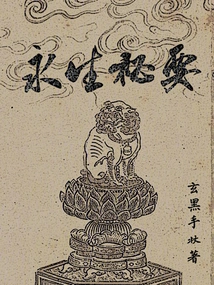 永生秘要
玄黑手杖著